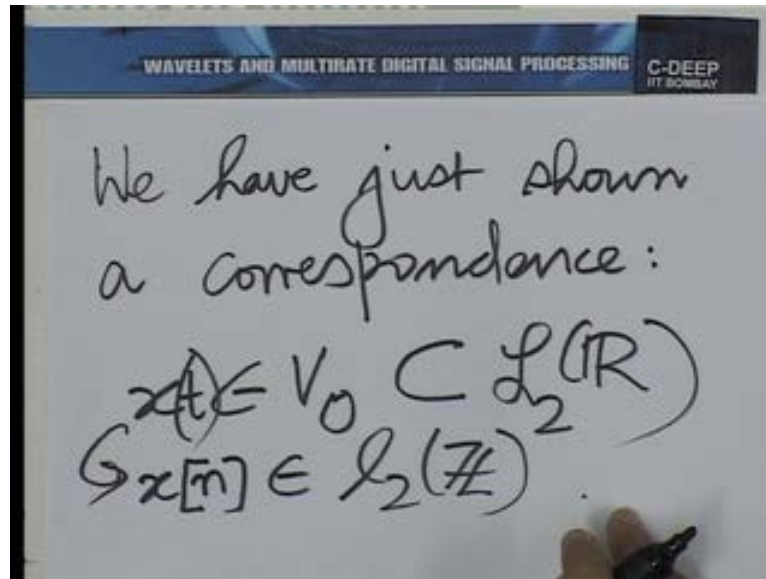 WAVELETS AND MULTIRATE DIGITAL SIGNAL PROCESSING
C-DEEP
IIT BOMBAY
We have just shown
a correspondence:
x(t) ∈ V₀ ⊂ ℒ₂(ℝ)
↳ x[n] ∈ l₂(ℤ).